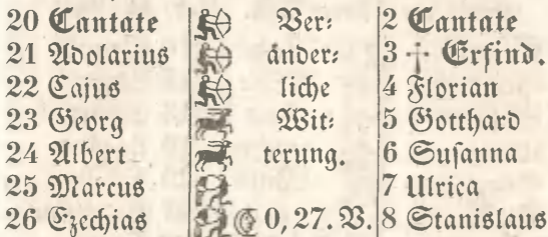 20 Cantate Ver⸗ 2 Cantate
21 Adolarius änder⸗ 3 † Erfind.
22 Cajus liche 4 Florian
23 Georg Wit⸗ 5 Gotthard
24 Albert terung. 6 Suſanna
25 Marcus 7 Ulrica
26 Ezechias ☾ 0, 27. V. 8 Stanislaus